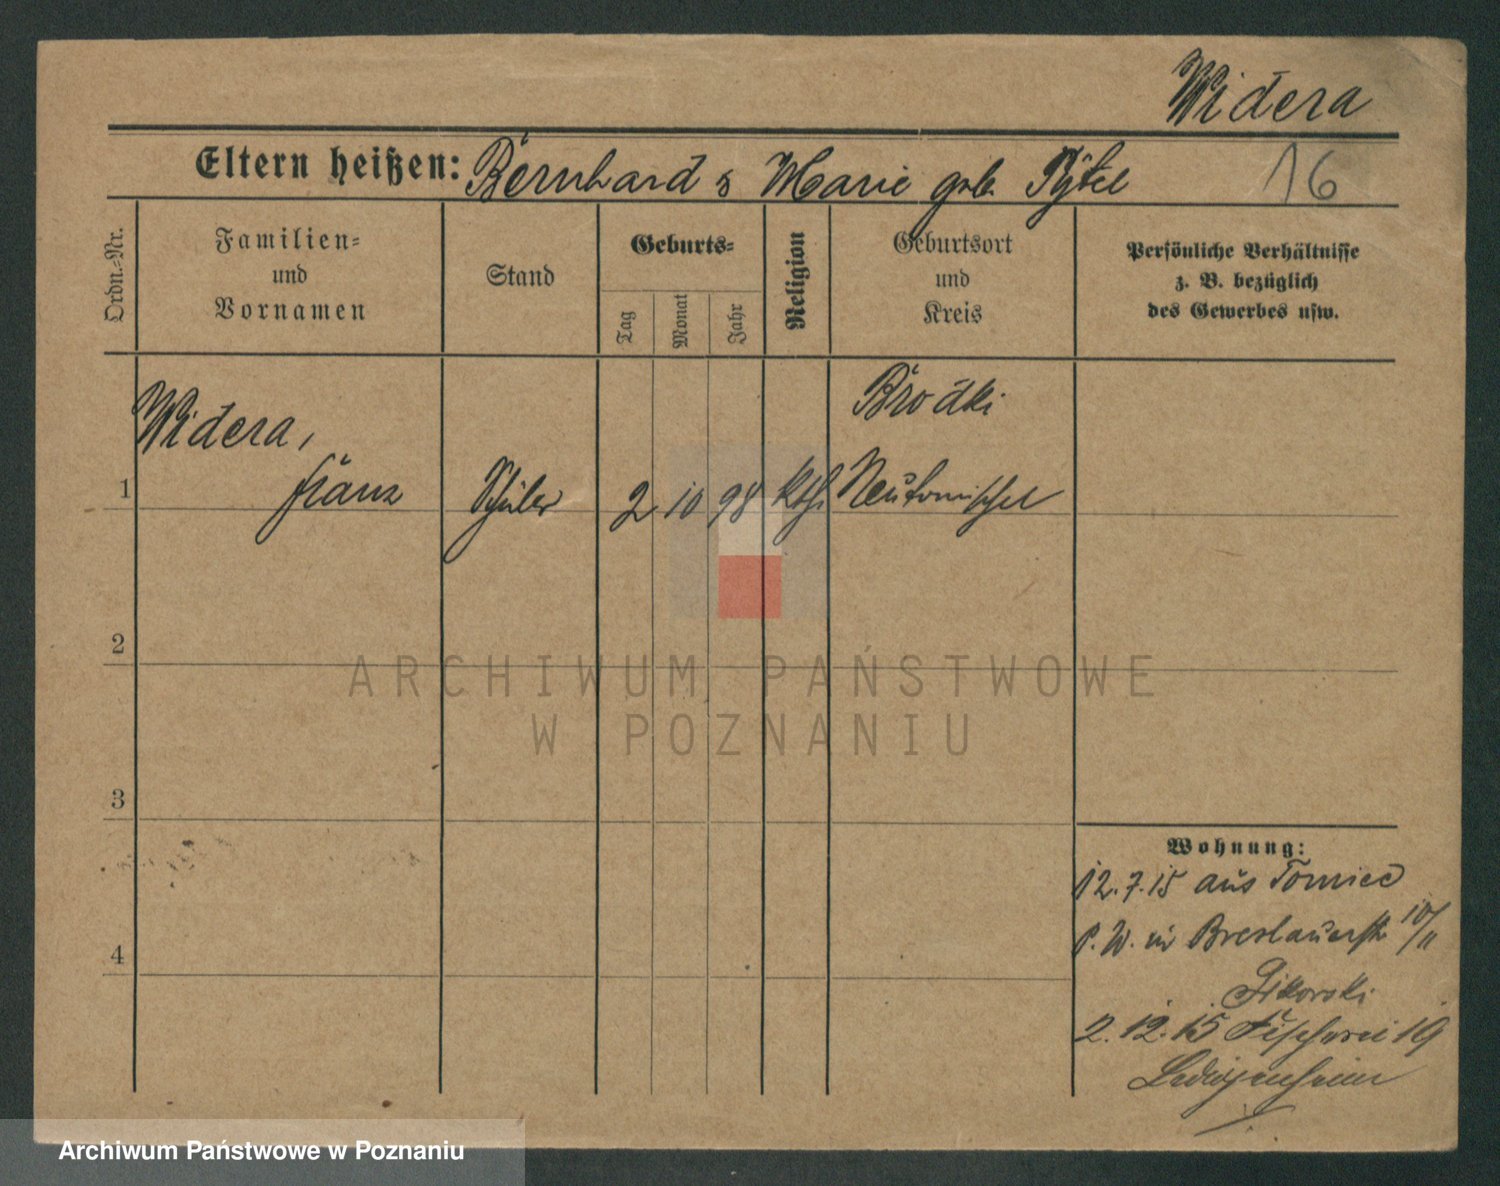 Widera
Eltern heißen: Bernhard & Marie geb.
16
Ordn.-Nr.
Familien-
und
Vornamen
Stand
Geburts-
Tag
Monat
Jahr
Religion
Geburtsort
und
Kreis
Persönliche Verhältnisse
z. B. bezüglich
des Gewerbes usw.
Widera,
Brodki
1 Franz Schüler 2 10 98 kth. Neutomischel
2
ARCHIWUM PAŃSTWOWE
W POZNANIU
3
Wohnung:
12.7.15 aus Tomice
P. W. in Breslauerstr 10/11
4
Sikorski
2.12.15 Fischerei 19
Archiwum Państwowe w Poznaniu